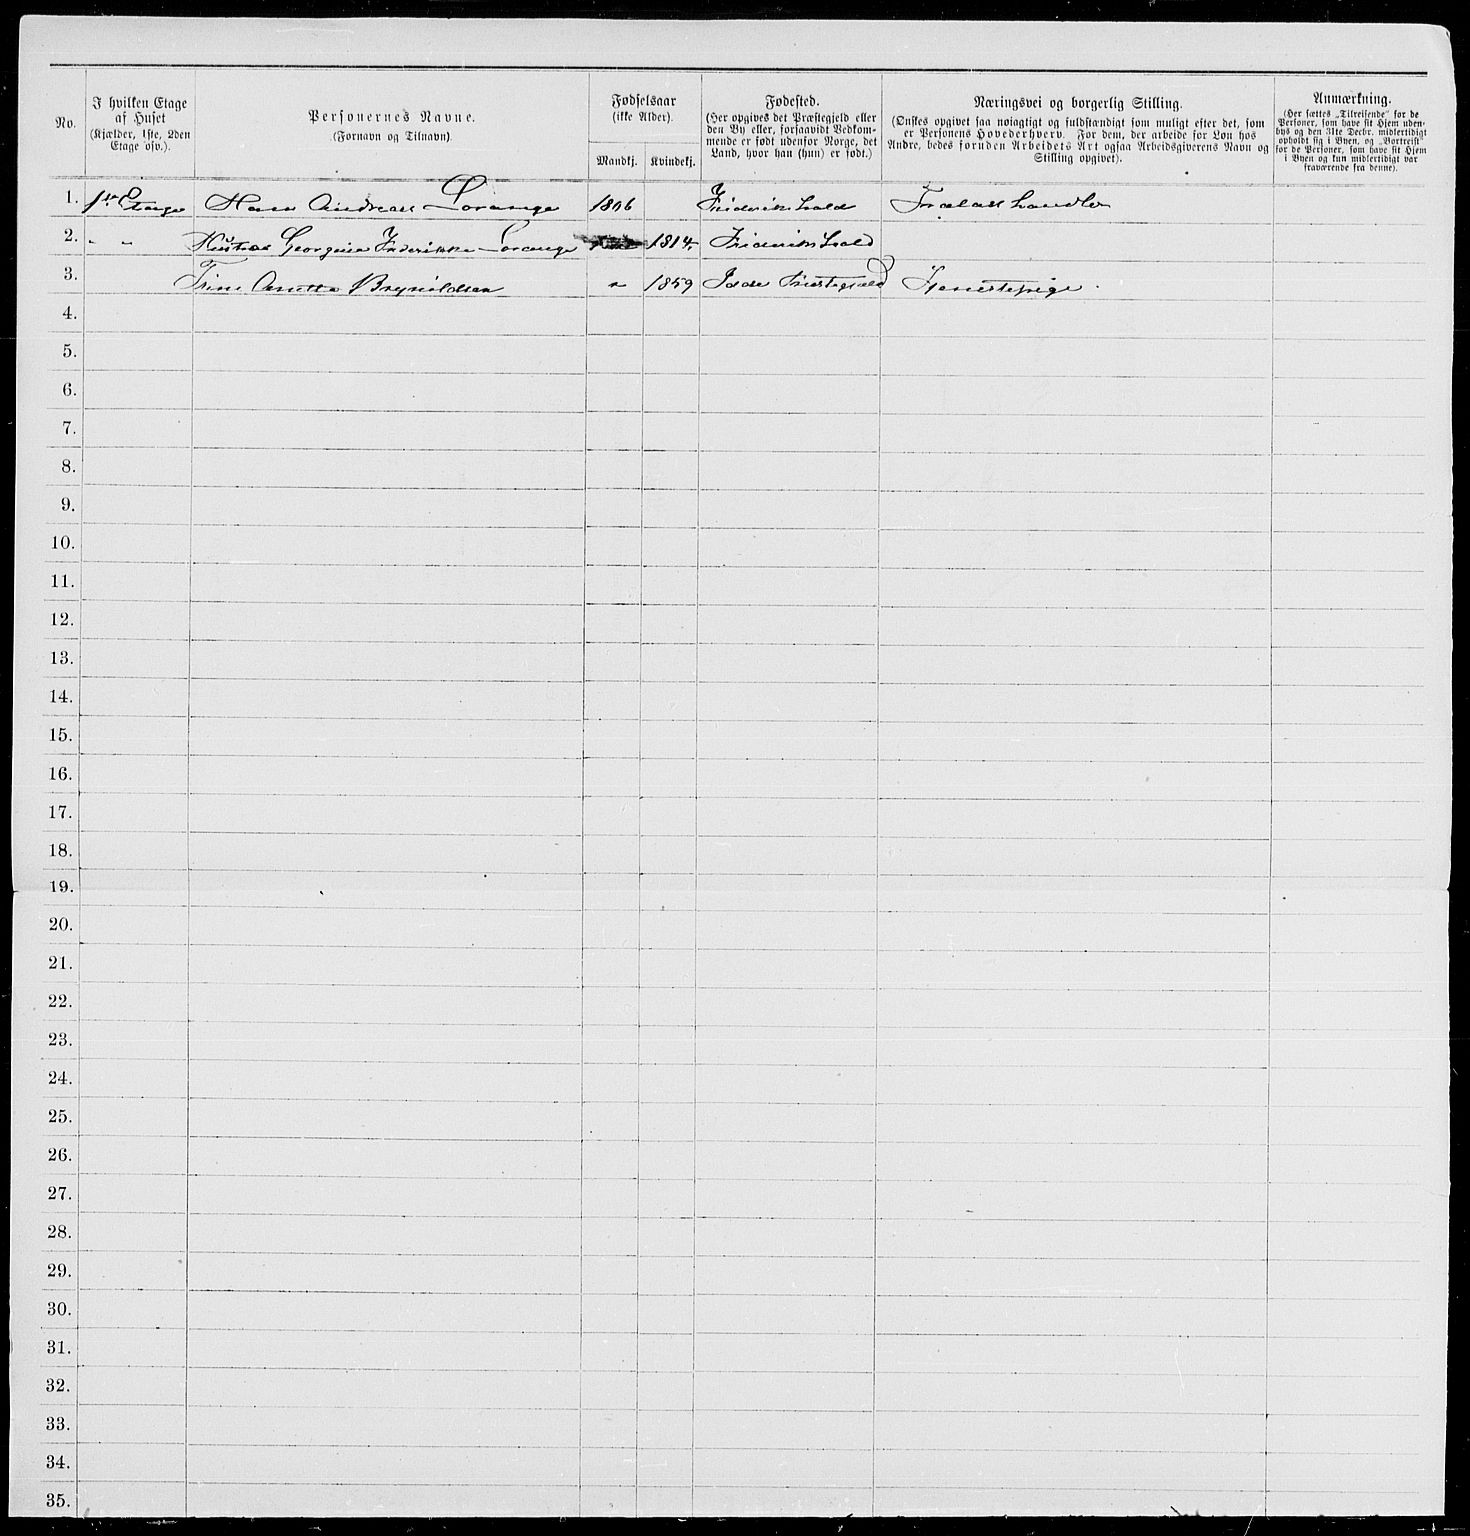 No.
I hvilken Etage
af Huset
(Kjælder, 1ste, 2den
Etage osv.).
Personernes Navne.
(Fornavn og Tilnavn).
Fødselsaar
(ikke Alder).
Mandkj. Kvindekj.
Fødested.
(Her opgives det Præstegjeld eller
den By eller, forsaavidt Vedkom-
mende er født udenfor Norge, det
Land, hvor han (hun) er født.)
Næringsvei og borgerlig Stilling.
(Ønskes opgivet saa nøiagtigt og fuldstændigt som muligt efter det, som
er Personens Hovederhverv. For dem, der arbeide for Løn hos
Andre, bedes foruden Arbeidets Art ogsaa Arbeidsgiverens Navn og
Stilling opgivet).
Anmærkning.
(Her sættes „Tilreisende“ for de
Personer, som have sit Hjem uden-
bys og den 31te Decbr. midlertidigt
opholdt sig i Byen, og „Bortreist“
for de Personer, som have sit Hjem
i Byen og kun midlertidigt var
fraværende fra denne).
1. 1ste Etage Hans Andreas Lorange 1806 Frideriks hald Trælast handler
2. " " Hustro Georgine Frederikke Lorange 1814 Frideriks hald
3. Trine Anette Brynildsen " 1859 Idde Præstegjeld Tjenestepige.
4.
5.
6.
7.
8.
9.
10.
11.
12.
13.
14.
15.
16.
17.
18.
19.
20.
21.
22.
23.
24.
25.
26.
27.
28.
29.
30.
31.
32.
33.
34.
35.